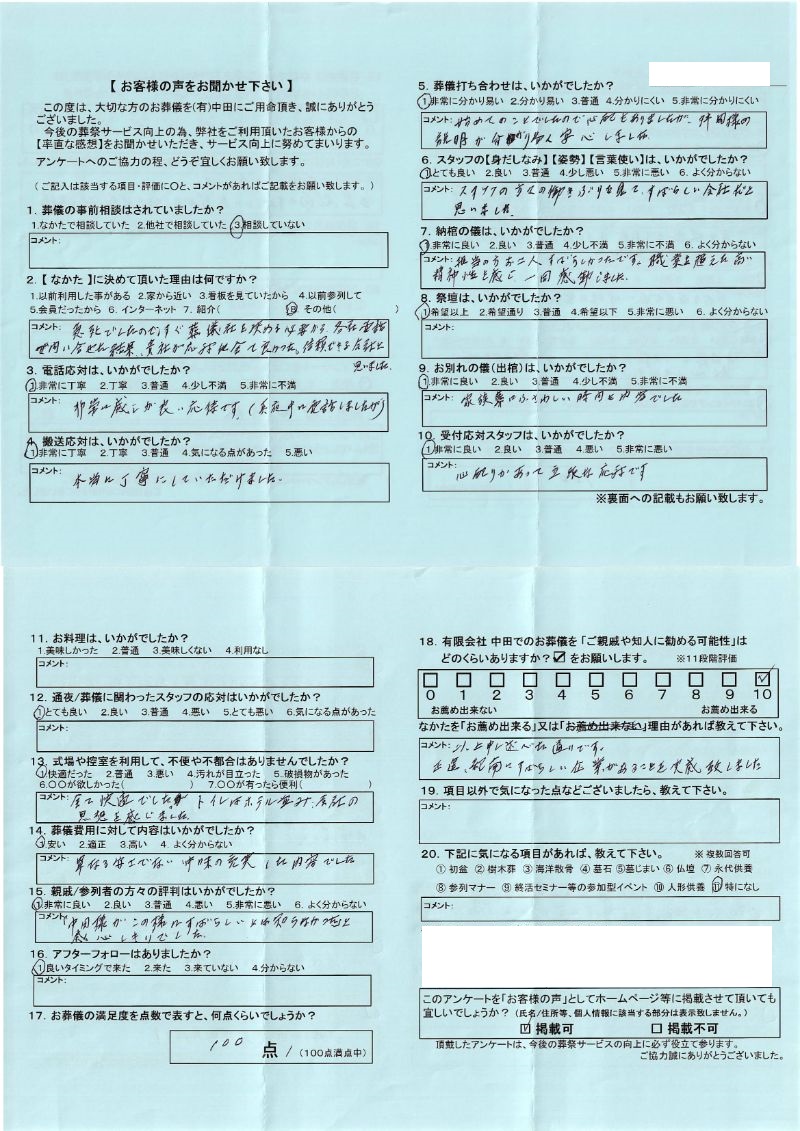 【 お客様の声をお聞かせ下さい 】
この度は、大切な方のお葬儀を(有)中田にご用命頂き、誠にありがとう
ございました。
今後の葬祭サービス向上の為、弊社をご利用頂いたお客様からの
【率直な感想】をお聞かせいただき、サービス向上に努めてまいります。
アンケートへのご協力の程、どうぞ宜しくお願い致します。
( ご記入は該当する項目・評価に○と、コメントがあればご記載をお願い致します。 )
1. 葬儀の事前相談はされていましたか?
1.なかたで相談していた 2.他社で相談していた 3.相談していない
コメント:
2.【 なかた 】に決めて頂いた理由は何ですか?
1.以前利用した事がある 2.家から近い 3.看板を見ていたから 4.以前参列して
5.会員だったから 6. インターネット 7. 紹介( ⑩ その他( )
コメント: 急死でしたのですぐ葬儀社を決める必要から、各社電話
で問い合せた結果、貴社が応対は全て良かった。信頼できる会社と
思いました
3. 電話応対は、いかがでしたか?
1.非常に丁寧 2.丁寧 3.普通 4.少し不満 5.非常に不満
コメント: 非常に感じが良い応待です。(真夜中に電話しましたが)
4. 搬送応対は、いかがでしたか?
1.非常に丁寧 2.丁寧 3.普通 4.気になる点があった 5.悪い
コメント: 本当に丁寧にしていただけました。
5. 葬儀打ち合わせは、いかがでしたか?
1.非常に分かり易い 2.分かり易い 3.普通 4.分かりにくい 5.非常に分かりにくい
コメント: 始めてのことでしたので心配もありましたが、中田様の
説明が分かり易く安心しました
6. スタッフの【身だしなみ】【姿勢】【言葉使い】は、いかがでしたか?
1.とても良い 2.良い 3.普通 4.少し悪い 5.非常に悪い 6. よく分からない
コメント: スタッフの方々の働きぶりを見て、すばらしい会社だと
思いました。
7. 納棺の儀は、いかがでしたか?
1.非常に良い 2.良い 3.普通 4.少し不満 5.非常に不満 6. よく分からない
コメント: 担当のうち二人、すばらしかったです。職業を超えた高い
精神性を感じ、一同感謝しました。
8. 祭壇は、いかがでしたか?
1.希望以上 2.希望通り 3.普通 4.希望以下 5.非常に悪い 6. よく分からない
コメント:
9. お別れの儀(出棺)は、いかがでしたか?
1.非常に良い 2.良い 3.普通 4.少し不満 5.非常に不満
コメント: 家族葬にふさわしい時間と内容でした
10. 受付応対スタッフは、いかがでしたか?
1.非常に良い 2.良い 3.普通 4.悪い 5.非常に悪い
コメント: 心配りがあって立派な応対です
※裏面への記載もお願い致します。
11. お料理は、いかがでしたか?
1.美味しかった 2.普通 3.美味しくない 4.利用なし
コメント:
12. 通夜/葬儀に関わったスタッフの応対はいかがでしたか?
1.とても良い 2.良い 3.普通 4.悪い 5.とても悪い 6.気になる点があった
コメント:
13. 式場や控室を利用して、不便や不都合はありませんでしたか?
1.快適だった 2.普通 3.悪い 4.汚れが目立った 5.破損物があった
6.○○が欲しかった( ) 7.○○が有ったら便利( )
コメント: 全て快適でした。トイレはホテル並み、会社の
思想を感じました。
14. 葬儀費用に対して内容はいかがでしたか?
1.安い 2.適正 3.高い 4. よく分からない
コメント: 単なる安さでない中味の充実した内容でした
15. 親戚/参列者の方々の評判はいかがでしたか?
1.非常に良い 2.良い 3.普通 4.悪い 5.非常に悪い 6. よく分からない
コメント: 中田様がこの様にすばらしいとは知らなかったと
感心しきりでした。
16. アフターフォローはありましたか?
1.良いタイミングで来た 2.来た 3.来ていない 4.分からない
コメント:
17. お葬儀の満足度を点数で表すと、何点くらいでしょうか?
100 点 / (100点満点中)
18. 有限会社 中田でのお葬儀を「ご親戚や知人に勧める可能性」は
どのくらいありますか? ☑ をお願いします。 ※11段階評価
0 1 2 3 4 5 6 7 8 9 10
お薦め出来ない お薦め出来る
なかたを「お薦め出来る」又は「お薦め出来ない」理由があれば教えて下さい。
コメント: 以上申し述べた通りです。
正直、静岡にすばらしい企業があることを実感致しました
19. 項目以外で気になった点などございましたら、教えて下さい。
コメント:
20. 下記に気になる項目があれば、教えて下さい。 ※ 複数回答可
① 初盆 ② 樹木葬 ③ 海洋散骨 ④ 墓石 ⑤墓じまい ⑥ 仏壇 ⑦ 永代供養
⑧ 参列マナー ⑨ 終活セミナー等の参加型イベント ⑩ 人形供養 ⑪ 特になし
コメント:
このアンケートを「お客様の声」としてホームページ等に掲載させて頂いても
宜しいでしょうか? (氏名/住所等、個人情報に該当する部分は表示致しません。)
☑ 掲載可 □ 掲載不可
頂戴したアンケートは、今後の葬祭サービスの向上に必ず役立て参ります。
ご協力誠にありがとうございました。